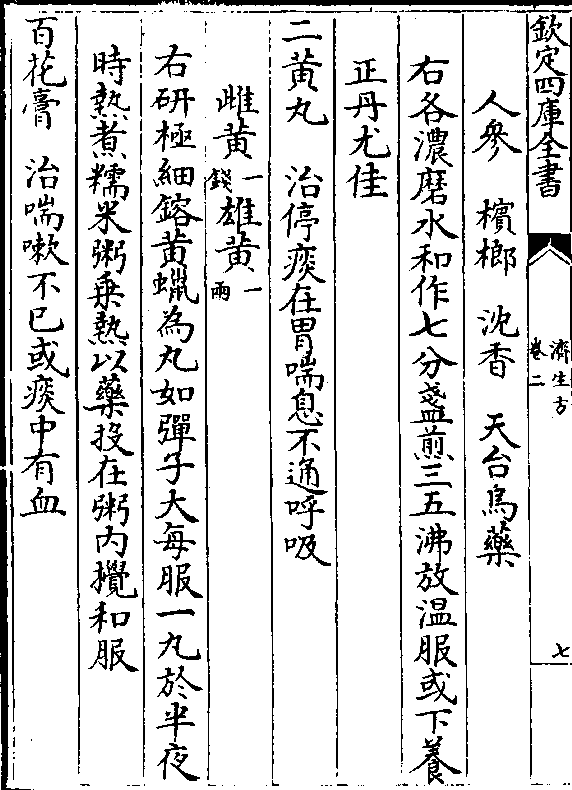 欽定四庫全書
濟生方
卷二
七
人參 檳榔 沈香 天台烏藥
右各濃磨水和作七分盞煎三五沸放温服或下養
正丹尤佳
二黄丸 治停痰在胃喘息不通呼吸
雌黄一錢雄黄一兩
右研極細鎔黄蠟為丸如彈子大每服一丸於半夜
時熱煮糯米粥乗熱以藥投在粥内攪和服
百花膏 治喘嗽不已或痰中有血